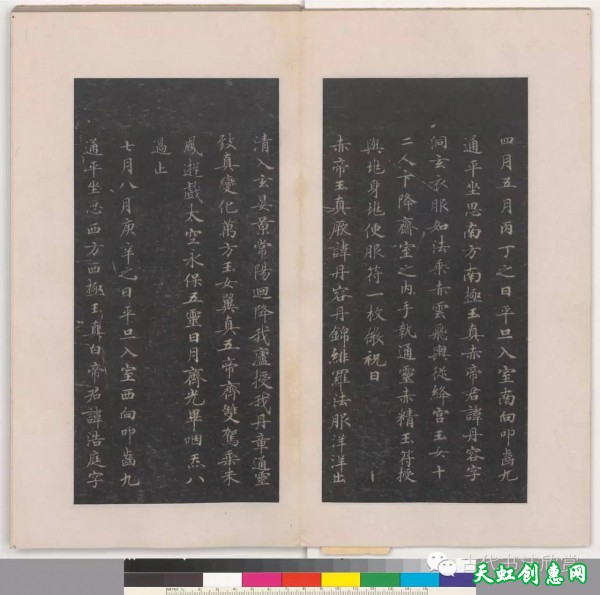 四月五月丙丁之日平旦入室南向叩齒九
通平坐思南方南極玉真赤帝君諱丹容字
洞玄衣服如法乘赤雲飛輿從絳宮玉女十
二人下降齋室之内手執通靈赤精玉符授
與地身地便服符一枚微祝曰
赤帝玉真厥諱丹容丹錦緋羅法服洋洋出
清入玄晏景常陽迴降我廬授我丹章通靈
致真變化萬方玉女翼真五帝齊雙駕乘朱
鳳遊戲太空永保五靈日月齊光畢咽炁八
過止
七月八月庚辛之日平旦入室西向叩齒九
通平坐思西方西極玉真白帝君諱浩庭字
古代书法欣赏
天虹创惠网